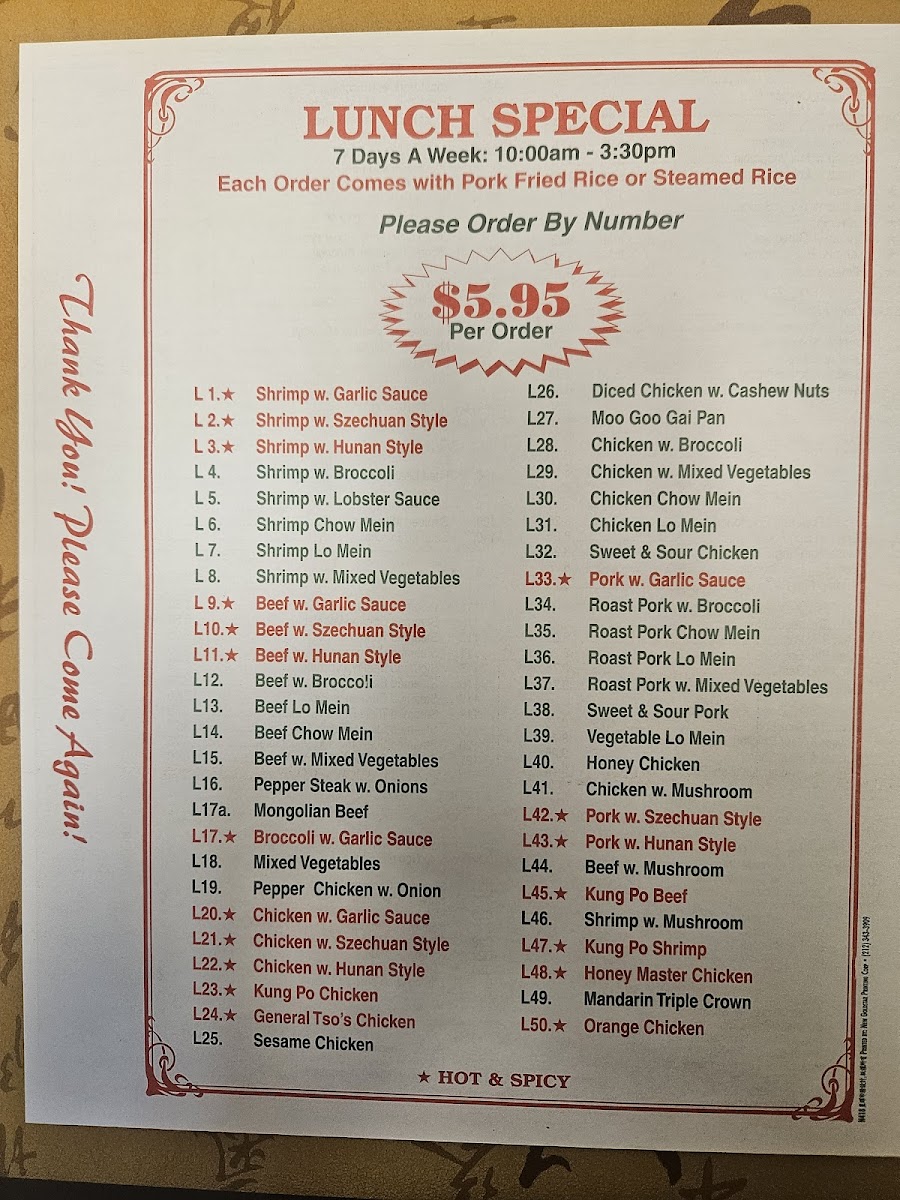 LUNCH SPECIAL
7 Days A Week: 10:00am - 3:30pm
Each Order Comes with Pork Fried Rice or Steamed Rice
Please Order By Number
$5.95
Per Order
L 1.★ Shrimp w. Garlic Sauce
L 2.★ Shrimp w. Szechuan Style
L 3.★ Shrimp w. Hunan Style
L 4. Shrimp w. Broccoli
L 5. Shrimp w. Lobster Sauce
L 6. Shrimp Chow Mein
L 7. Shrimp Lo Mein
L 8. Shrimp w. Mixed Vegetables
L 9.★ Beef w. Garlic Sauce
L10.★ Beef w. Szechuan Style
L11.★ Beef w. Hunan Style
L12. Beef w. Broccoli
L13. Beef Lo Mein
L14. Beef Chow Mein
L15. Beef w. Mixed Vegetables
L16. Pepper Steak w. Onions
L17a. Mongolian Beef
L17.★ Broccoli w. Garlic Sauce
L18. Mixed Vegetables
L19. Pepper Chicken w. Onion
L20.★ Chicken w. Garlic Sauce
L21.★ Chicken w. Szechuan Style
L22.★ Chicken w. Hunan Style
L23.★ Kung Po Chicken
L24.★ General Tso's Chicken
L25. Sesame Chicken
L26. Diced Chicken w. Cashew Nuts
L27. Moo Goo Gai Pan
L28. Chicken w. Broccoli
L29. Chicken w. Mixed Vegetables
L30. Chicken Chow Mein
L31. Chicken Lo Mein
L32. Sweet & Sour Chicken
L33.★ Pork w. Garlic Sauce
L34. Roast Pork w. Broccoli
L35. Roast Pork Chow Mein
L36. Roast Pork Lo Mein
L37. Roast Pork w. Mixed Vegetables
L38. Sweet & Sour Pork
L39. Vegetable Lo Mein
L40. Honey Chicken
L41. Chicken w. Mushroom
L42.★ Pork w. Szechuan Style
L43.★ Pork w. Hunan Style
L44. Beef w. Mushroom
L45.★ Kung Po Beef
L46. Shrimp w. Mushroom
L47.★ Kung Po Shrimp
L48.★ Honey Master Chicken
L49. Mandarin Triple Crown
L50.★ Orange Chicken
★ HOT & SPICY
Thank You! Please Come Again!
Printed by: New Goldstar Printing Corp • (212) 343-3909